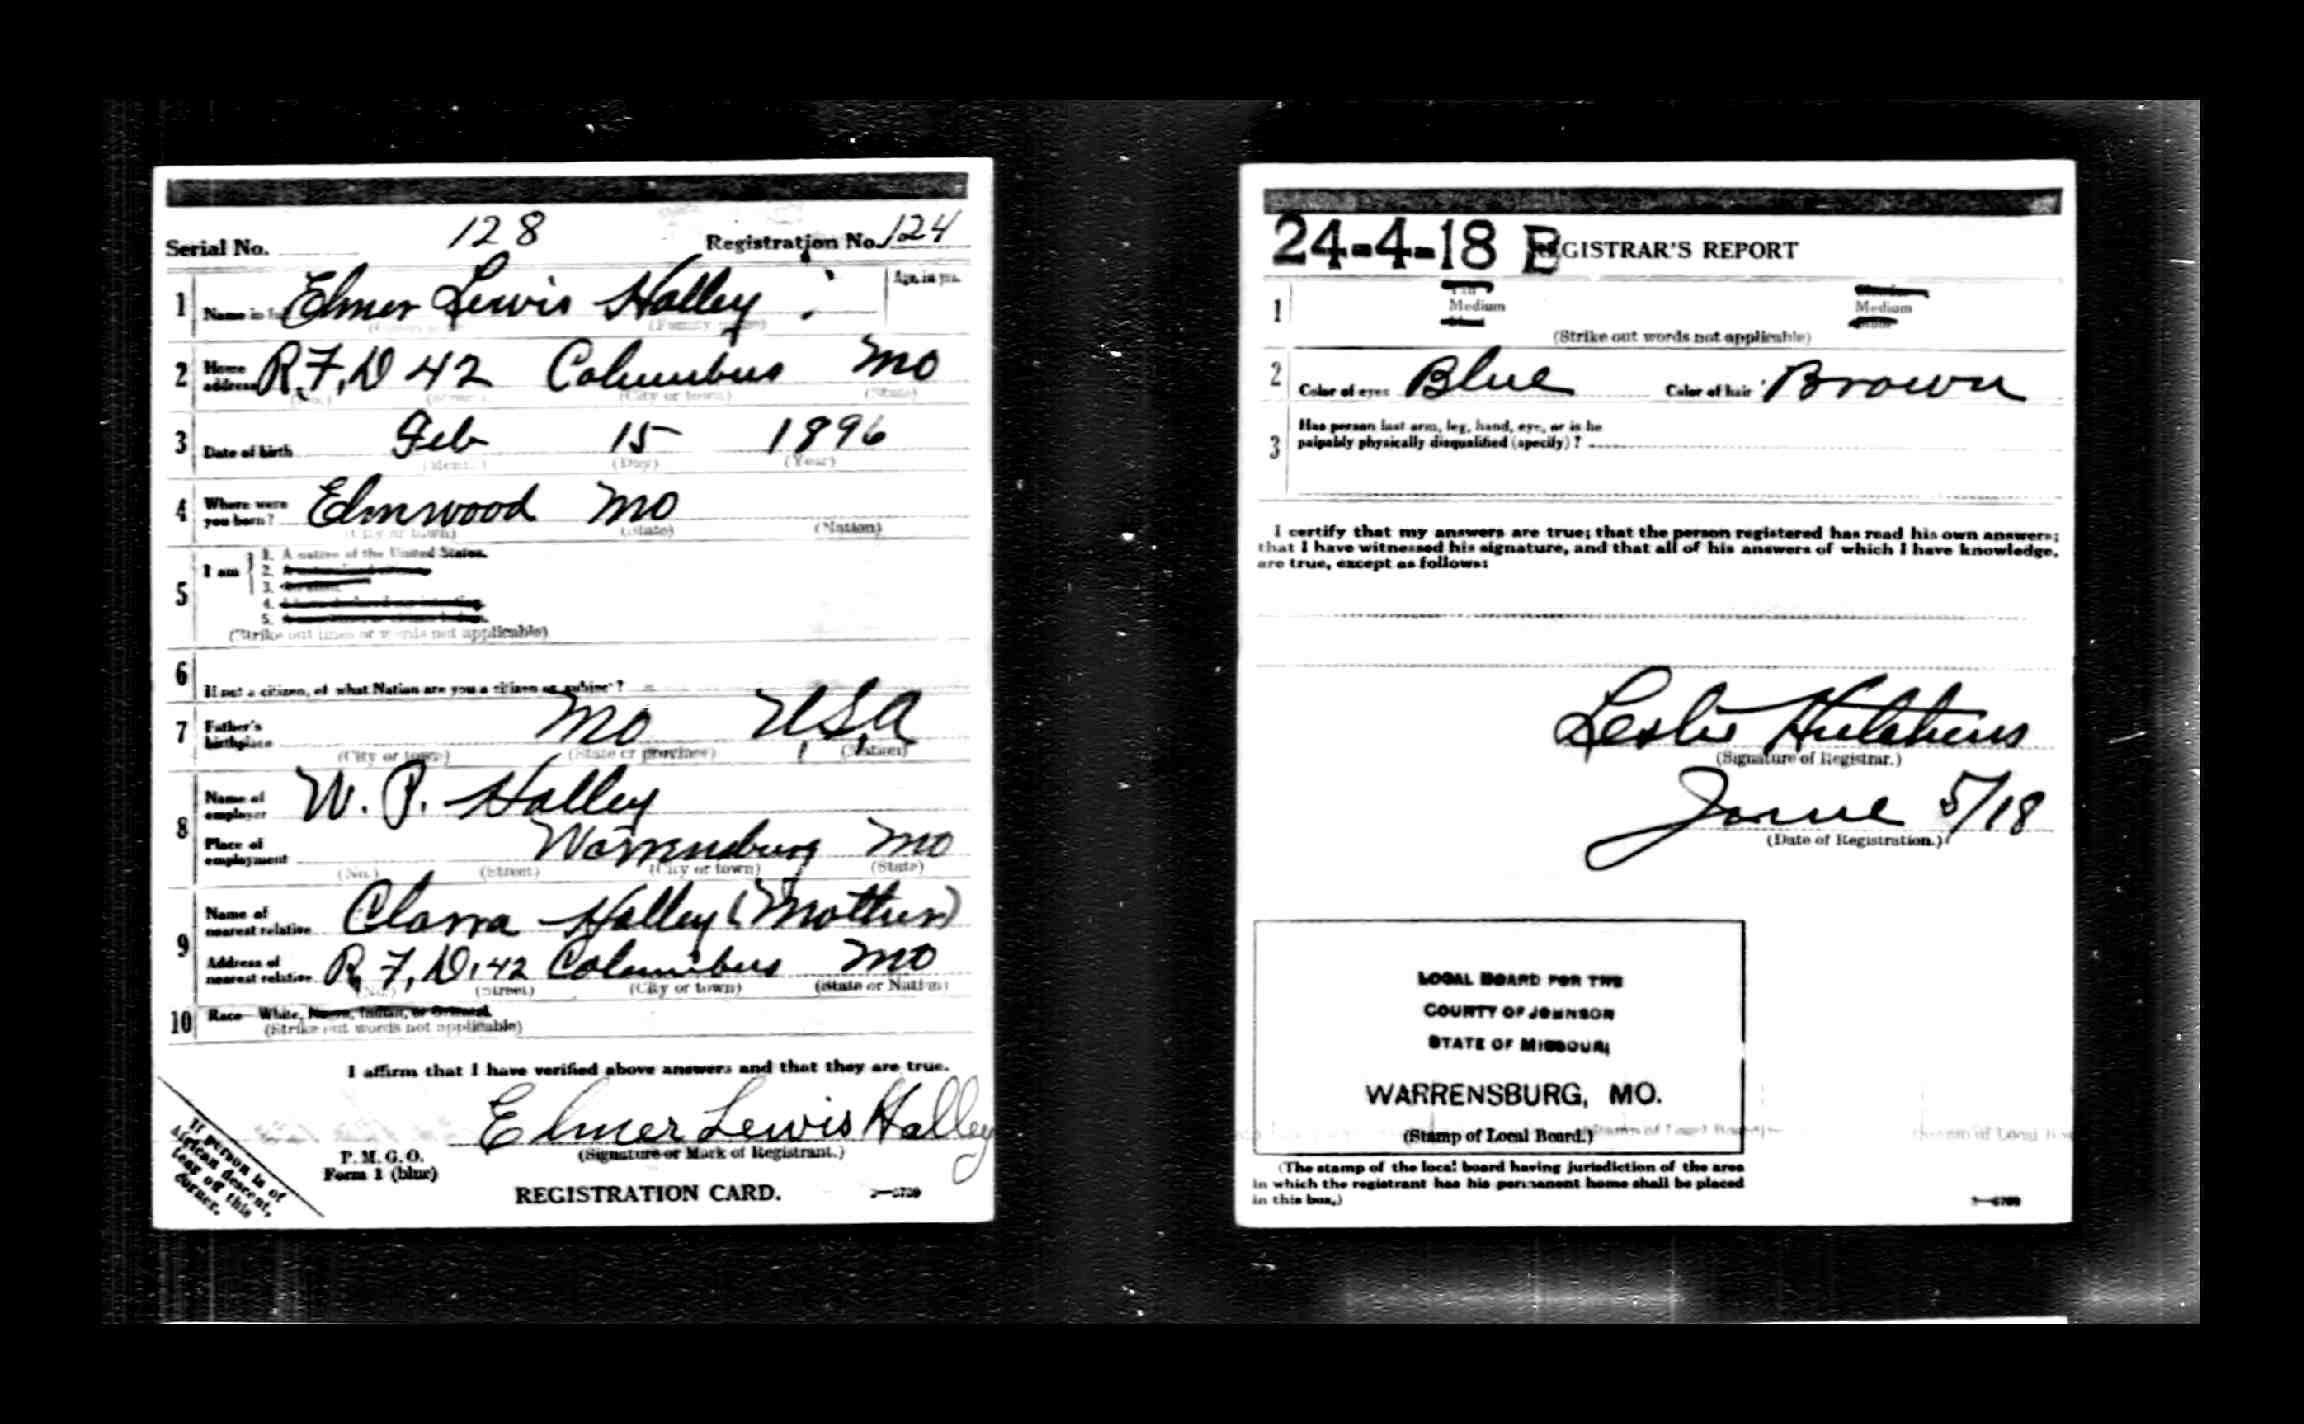 Serial No. 128 Registration No. 124
1 Name in Elmer Lewis Halley Age, in yrs.
(Family name)
2 Home address R.F.D 42 Columbus Mo
(No.) (Street) (City or town) (State)
3 Date of birth Feb 15 1896
(Month) (Day) (Year)
4 Where were you born? Elmwood Mo
(City or town) (State) (Nation)
1. A native of the United States.
5 I am 2.
3.
4.
5.
(Strike out lines or words not applicable)
6 If not a citizen, of what Nation are you a citizen or subject?
7 Father's birthplace Mo U.S.A
(City or town) (State or province) (Nation)
8 Name of employer W. P. Halley
Place of employment Warrensburg Mo
(No.) (Street) (City or town) (State)
9 Name of nearest relative Clarra Halley (Mother)
Address of nearest relative R.F.D. 42 Columbus Mo
(No.) (Street) (City or town) (State or Nation)
10 Race—White, Negro, Indian, or Oriental.
(Strike out words not applicable)
I affirm that I have verified above answers and that they are true.
Elmer Lewis Halley
(Signature or Mark of Registrant.)
P. M. G. O.
Form 1 (blue)
REGISTRATION CARD.
If person is of
African descent,
tear off this
corner.
24-4-18 E REGISTRAR'S REPORT
1 Medium Medium
(Strike out words not applicable)
2 Color of eyes Blue Color of hair Brown
3 Has person lost arm, leg, hand, eye, or is he
palpably physically disqualified (specify)?
I certify that my answers are true; that the person registered has read his own answers;
that I have witnessed his signature, and that all of his answers of which I have knowledge,
are true, except as follows:
Leslie Hutchens
(Signature of Registrar.)
June 5/18
(Date of Registration.)
LOCAL BOARD FOR THE
COUNTY OF JOHNSON
STATE OF MISSOURI
WARRENSBURG, MO.
(Stamp of Local Board.)
(The stamp of the local board having jurisdiction of the area
in which the registrant has his permanent home shall be placed
in this box.)